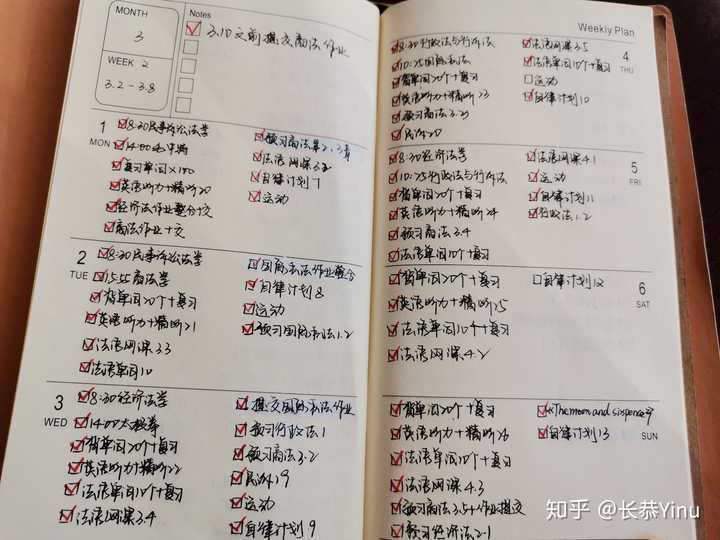 MONTH
3
WEEK 2
3.2-3.8
Notes
3.10之前提交商法作业
1
MON
8:30民事诉讼法学
14:00毛中特
复习单词×100
英语听力+精听20
经济法作业整合+交
商法作业+交
预习商法第2、3章
法语网课3.2
自律计划7
运动
2
TUE
8:30民事诉讼法学
15:55商法学
背单词20个+复习
英语听力+精听21
法语网课3.3
法语单词10
国际私法作业整合
自律计划8
运动
预习国际私法1.2
3
WED
8:30经济法学
14:00太极拳
背单词20个+复习
英语听力+精听22
法语单词10个+复习
法语网课3.4
提交国际私法作业
预习行政法1
预习商法3.2
民诉19
运动
自律计划9
Weekly Plan
4
THU
8:30行政法与行诉法
10:25国际私法
背单词20个+复习
英语听力+精听23
预习商法3.3
民诉20
法语网课3.5
法语单词10个+复习
运动
自律计划10
5
FRI
8:30经济法学
10:25行政法与行诉法
背单词20个+复习
英语听力+精听24
预习商法3.4
法语单词10个+复习
法语网课4.1
运动
自律计划11
行政法1.2
6
SAT
背单词20个+复习
英语听力+精听25
法语单词10个+复习
法语网课4.2
自律计划12
SUN
背单词20个+复习
英语听力+精听26
法语单词10个+复习
法语网课4.3
预习商法3.5+作业提交
预习经济法2.1
《The moon and sixpence》
自律计划13
知乎 @长恭Yinu